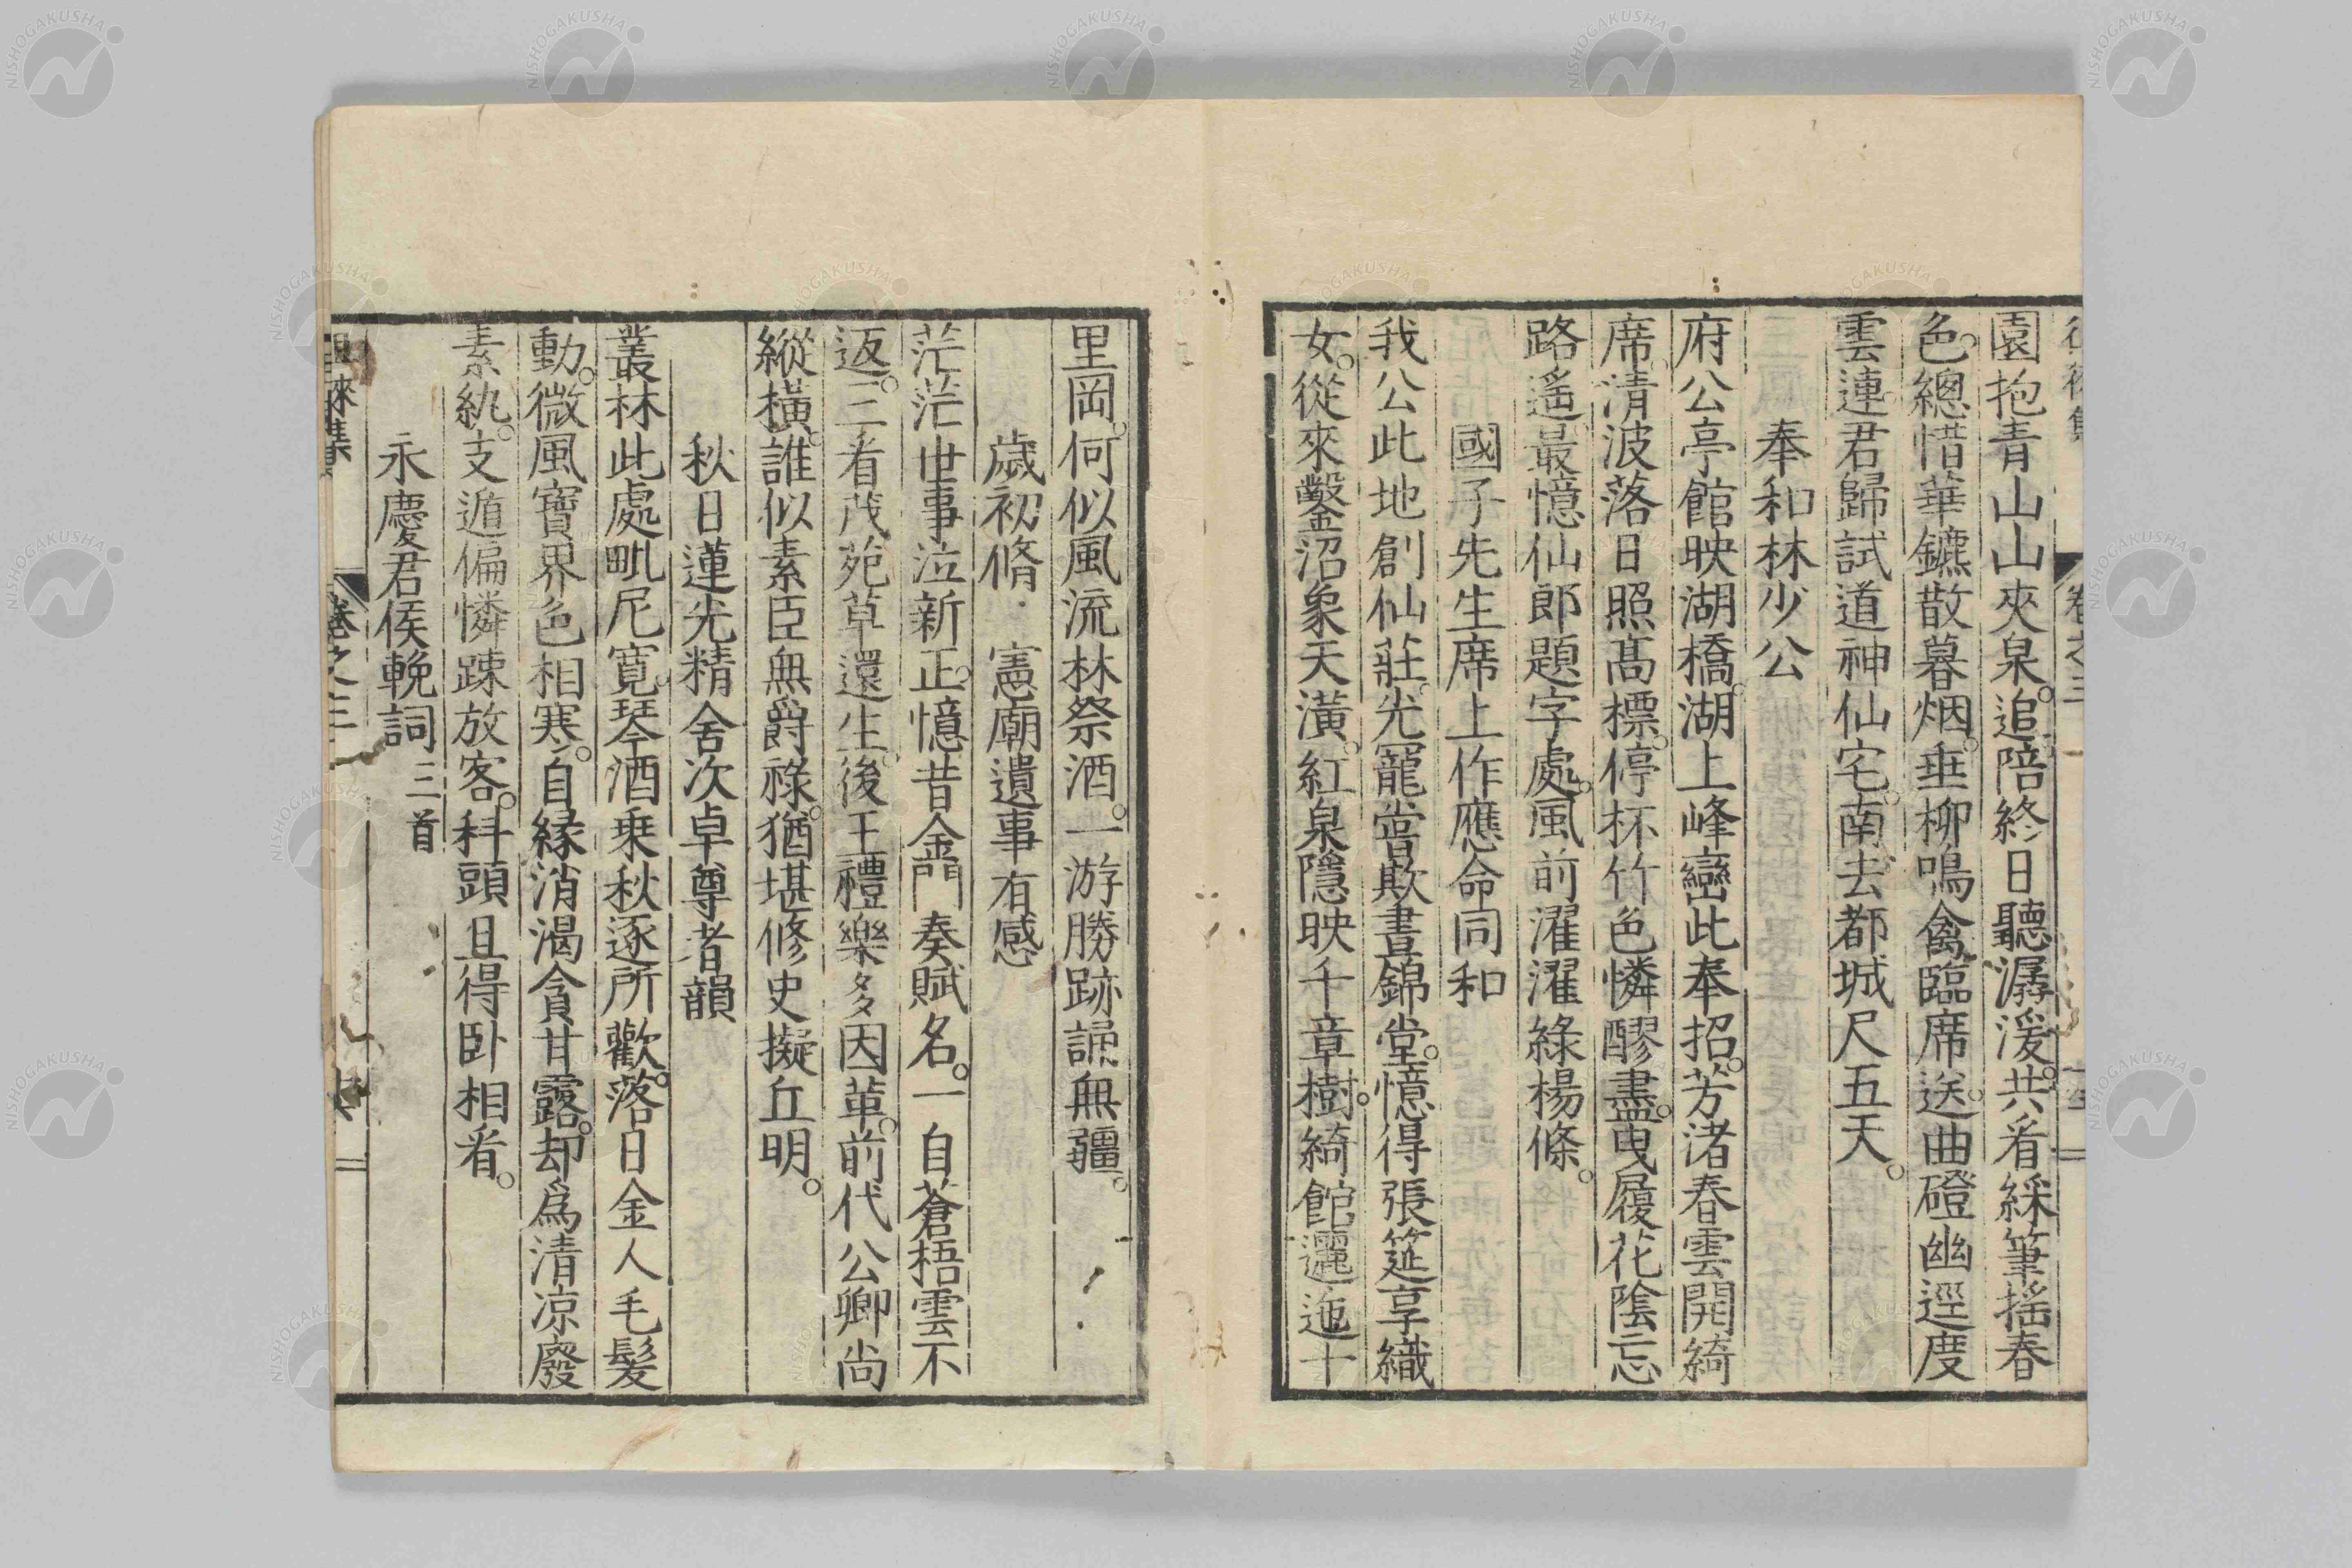 園抱青山山夾泉。追陪終日聽潺湲。共看綵筆揺春
色。總惜華鑣散暮烟。垂柳鳴禽臨席送。曲磴幽逕度
雲連。君歸試道神仙宅。南去都城尺五天。
奉和林少公
府公亭館映湖橋。湖上峰巒此奉招。芳渚春雲開綺
席。清波落日照髙標。停杯竹色憐醪盡。曳履花陰忘
路遙。最憶仙郎題字處。風前濯濯綠楊條。
國子先生席上作應命同和
我公此地創仙莊。光寵嘗欺晝錦堂。憶得張筵享織
女。從來鑿沼象天潢。紅泉隱映千章樹。綺館邐迤十
里岡。何似風流林祭酒。一游勝跡誦無疆。
歲初脩 憲廟遺事有感
茫茫世事泣新正。憶昔金門奏賦名。一自蒼梧雲不
返。三看茂苑草還生。後王禮樂多因革。前代公卿尚
縱橫。誰似素臣無爵祿。猶堪修史擬丘明。
秋日蓮光精舍次卓尊者韻
叢林此處毗尼寛。琴酒乗秋逐所歡。落日金人毛髮
動。微風寶界色相寒。自縁消渴貪甘露。却爲清凉廢
素紈。支遁偏憐踈放客。科頭且得臥相看。
永慶君侯輓詞 三首
徠集 卷之三